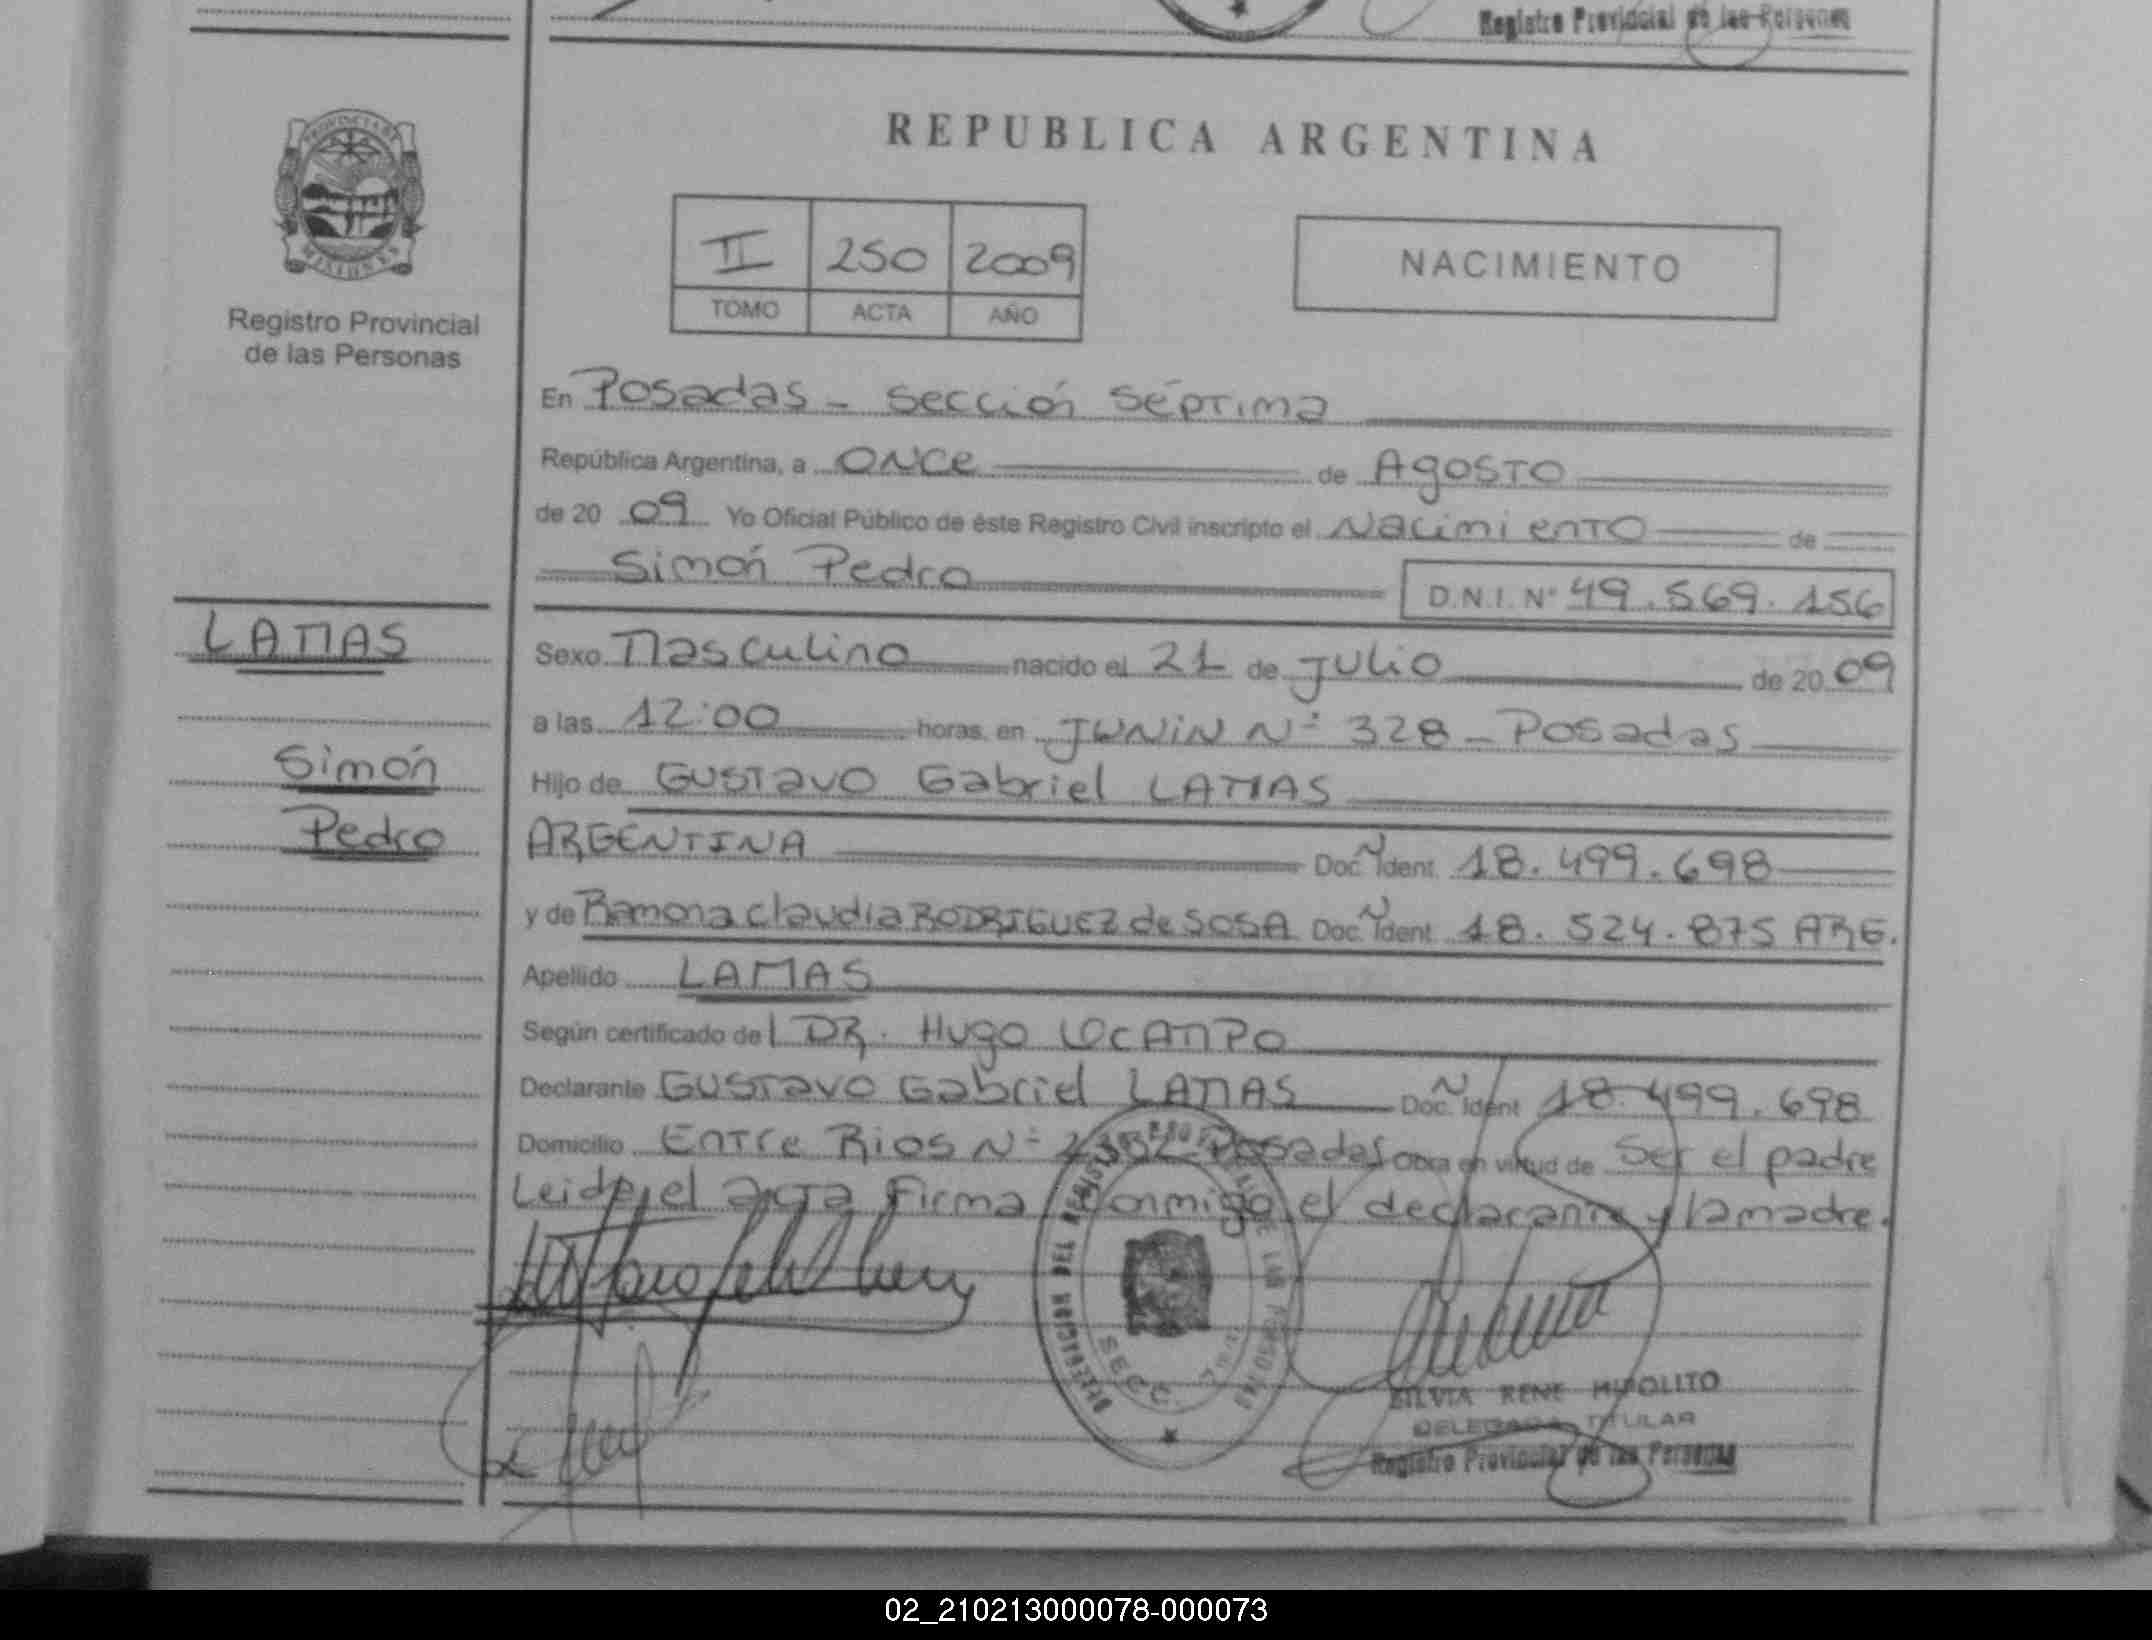 Registro Provincial de las Personas
REPUBLICA ARGENTINA
PROVINCIA DE
MISIONES
Registro Provincial
de las Personas
II 250 2009
TOMO ACTA AÑO
NACIMIENTO
En Posadas - sección séptima
República Argentina, a once de Agosto
de 20 09 Yo Oficial Público de éste Registro Civil inscripto el Nacimiento de
Simón Pedro D.N.I. Nº 49.569.156
LAMAS
Simón
Pedro
Sexo Masculino nacido el 21 de Julio de 20 09
a las 12:00 horas en JUNIN Nº 328 - Posadas
Hijo de Gustavo Gabriel LAMAS
ARGENTINA Doc. Ident. N 18.499.698
y de Ramona Claudia RODRIGUEZ de SOSA Doc. Ident. N 18.524.875 ARG.
Apellido LAMAS
Según certificado del DR. Hugo OCAMPO
Declarante Gustavo Gabriel LAMAS Doc. Ident N 18.499.698
Domicilio Entre Rios Nº Posadas Obra en virtud de Ser el padre
Leida el acta Firma conmigo el declarante y la madre.
SECC.
SILVIA RENE HIPOLITO
DELEGADA TITULAR
Registro Provincial de las Personas
02_210213000078-000073